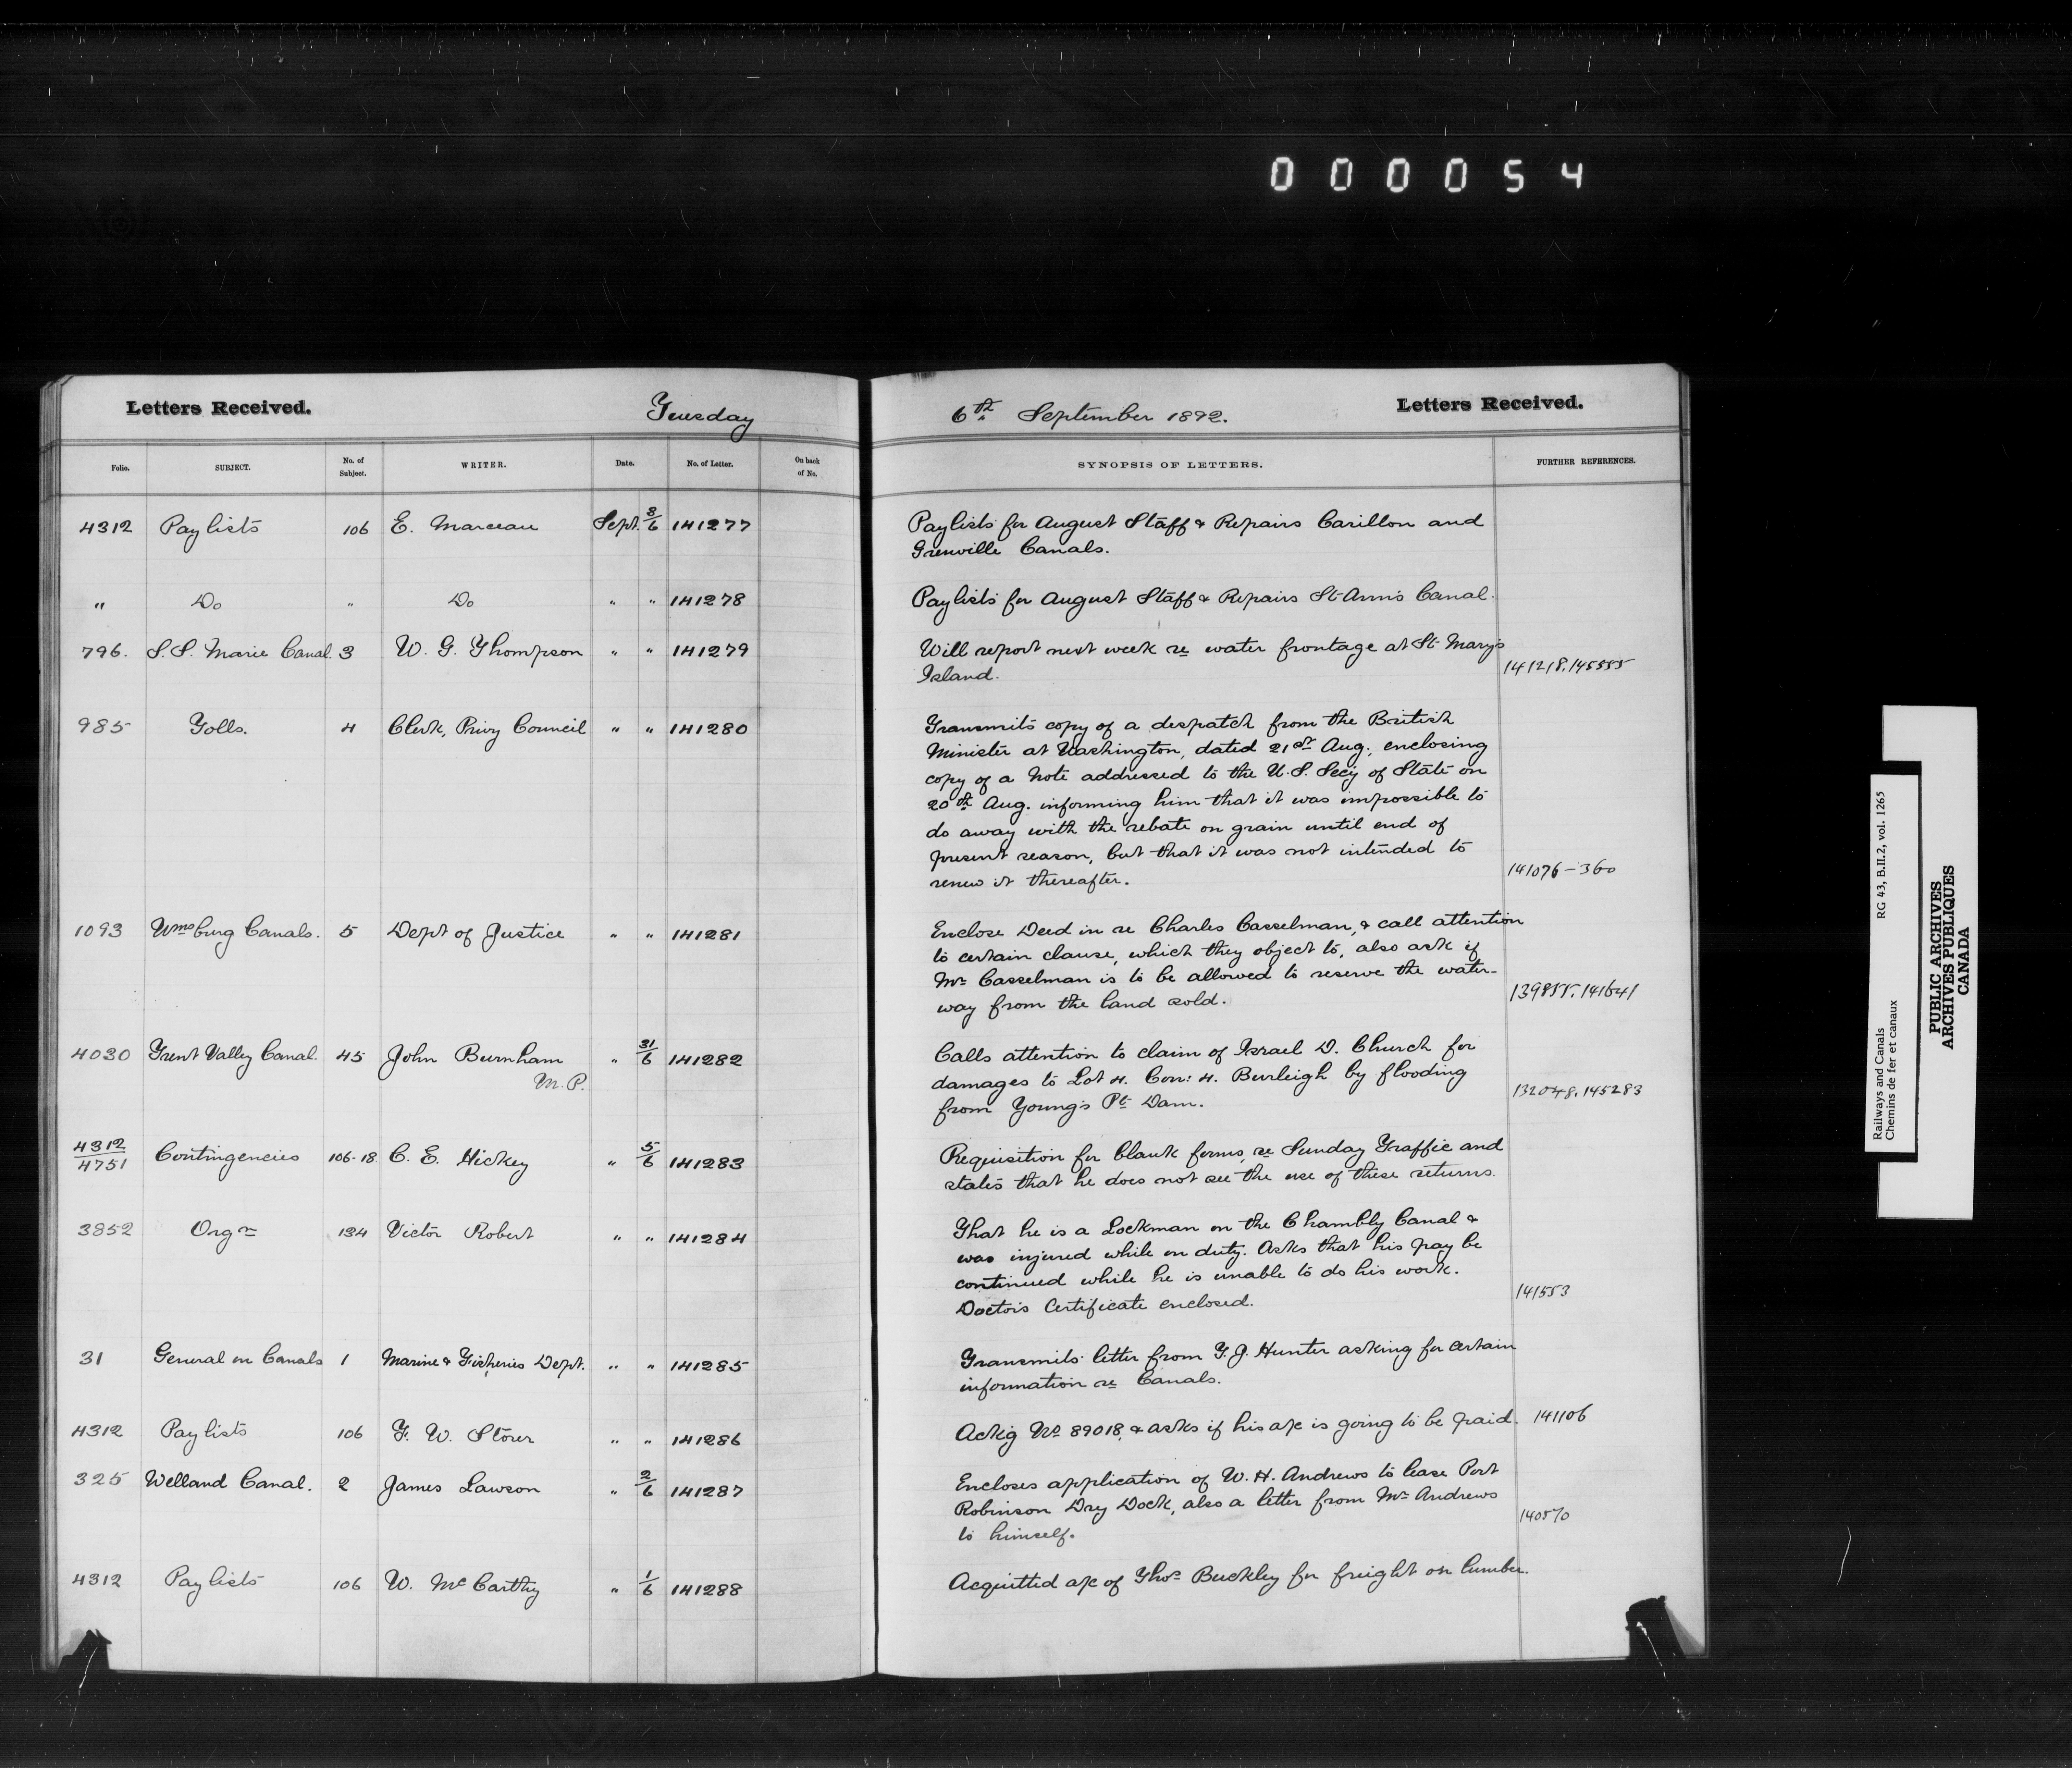 000054
Letters Received. Tuesday 6th September 1892. Letters Received.
Folio. SUBJECT. No. of Subject. WRITER. Date. No. of Letter. On back of No. SYNOPSIS OF LETTERS. FURTHER REFERENCES.
4312 Paylists 106 E. Marceau Sept. 3/6 141277 Paylists for August Staff & Repairs Carillon and
Grenville Canals.
" Do " Do " " 141278 Paylists for August Staff & Repairs St Ann's Canal.
796. S.S. Marie Canal. 3 W. G. Thompson " " 141279 Will report next week re water frontage at St Mary's
Island. 141218.145555
985 Tolls. 4 Clerk, Privy Council " " 141280 Transmits copy of a despatch from the British
Minister at Washington, dated 21st Aug., enclosing
copy of a note addressed to the U.S. Secy of State on
20th Aug. informing him that it was impossible to
do away with the rebate on grain until end of
present season, but that it was not intended to
renew it thereafter. 141076-360
1093 Wmsburg Canals. 5 Dept of Justice " " 141281 Enclose Deed in re Charles Casselman, & call attention
to certain clause, which they object to, also ask if
Mr Casselman is to be allowed to reserve the water-
way from the land sold. 139855.141641
4030 Trent Valley Canal. 45 John Burnham " 31/6 141282 Calls attention to claim of Israel D. Church for
M.P. damages to Lot 4. Con: 4. Burleigh by flooding
from Young's Pt Dam. 132048.145283
4312/4751 Contingencies 106-18 C. E. Hickey " 5/6 141283 Requisition for blank forms, re Sunday Traffic and
states that he does not see the use of these returns.
3852 Orgn 134 Victor Robert " " 141284 That he is a Lockman on the Chambly Canal &
was injured while on duty. Asks that his pay be
continued while he is unable to do his work.
Doctors Certificate enclosed. 141553
31 General on Canals 1 Marine & Fisheries Dept. " " 141285 Transmits letter from T. J. Hunter asking for certain
information re Canals.
4312 Paylists 106 T. W. Storer " " 141286 Ackg No 89018, & asks if his a/c is going to be paid. 141106
325 Welland Canal. 2 James Lawson " 2/6 141287 Encloses application of W. H. Andrews to lease Port
Robinson Dry Dock, also a letter from Mr Andrews
to himself. 140570
4312 Paylists 106 W. McCarthy " 1/6 141288 Acquitted a/c of Thos Buckley for freight on lumber.
Railways and Canals RG 43, B.II.2, vol. 1265
Chemins de fer et canaux
PUBLIC ARCHIVES
ARCHIVES PUBLIQUES
CANADA